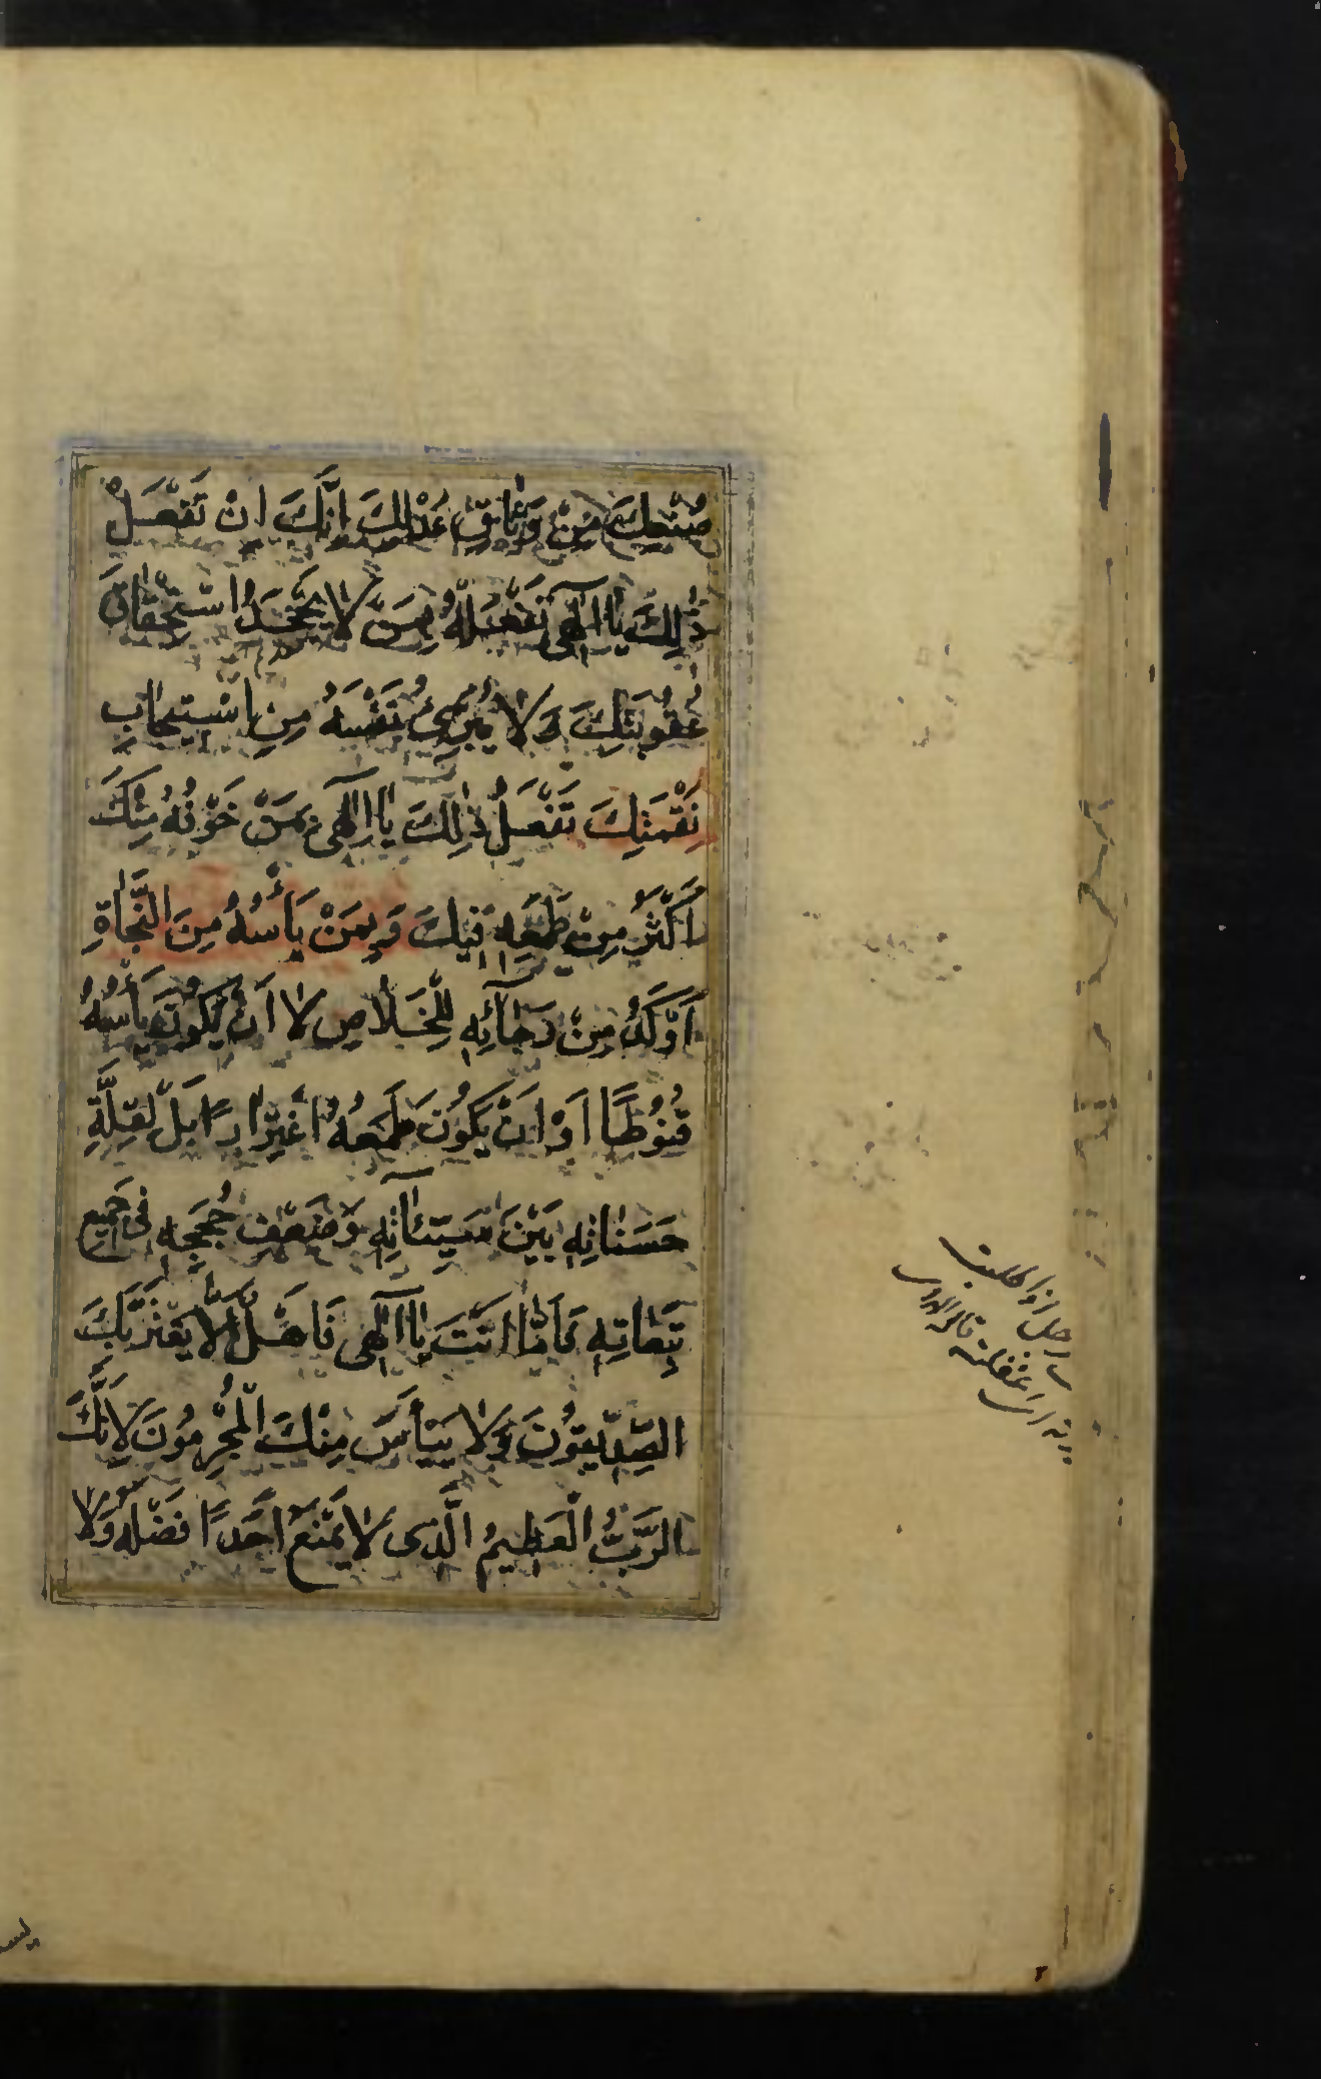 صُنْعِكَ مِنْ وَثَاقِ عَدْلِكَ اِنَّكَ اِنْ تَفْعَلْ
ذٰلِكَ يٰا اِلٰهى تَفْعَلْهُ بِمَنْ لا يَجْحَدُ اسْتِحْقٰاقَ
عُقُوبَتِكَ وَلا يُبَرِّئُ نَفْسَهُ مِنِ اسْتيجٰابِ
نَقْمَتِكَ تَفْعَلُ ذٰلِكَ يٰا اِلٰهى بِمَنْ خَوْفُهُ مِنْكَ
اَكْثَرُ مِنْ طَمَعِهِ فيكَ وَبِمَنْ يَأْسُهُ مِنَ النَّجٰاةِ
اَوْكَدُ مِنْ رَجٰائِهِ لِلْخَلٰاصِ لا اَنْ يَكُونَ يَأْسُهُ
قُنُوطًا اَوْ اَنْ يَكُونَ طَمَعُهُ اغْتِرٰارًا بَلْ لِقِلَّةِ
حَسَنٰاتِهِ بَيْنَ سَيِّئٰاتِهِ وَضَعْفِ حُجَجِهِ فى جَميعِ
تَبِعٰاتِهِ فَاَمّٰا اَنْتَ يٰا اِلٰهى فَاَهْلٌ اَنْ لا يَغْتَرَّ بِكَ
الصِّدّيقُونَ وَلا يَيْأَسَ مِنْكَ الْمُجْرِمُونَ لِاَنَّكَ
الرَّبُّ الْعَظيمُ الَّذى لا يَمْنَعُ اَحَدًا فَضْلَهُ وَلا